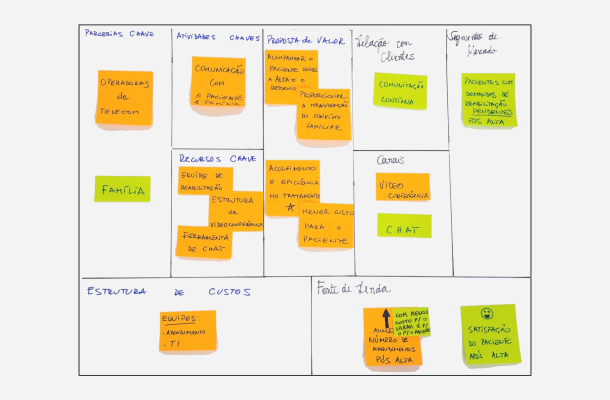 PARCERIAS CHAVE
OPERADORAS
de
TELECOM
FAMÍLIA
ATIVIDADES CHAVES
COMUNICAÇÃO
COM
O PACIENTE
A FAMÍLIA
RECURSOS CHAVE
EQUIPE DE
REABILITAÇÃO
ESTRUTURA
de
VIDEOCONFERÊNCIA
FERRAMENTA
DE CHAT
PROPOSTA de VALOR
ACOMPANHAR O
PACIENTE
A ALTA E O
RETORNO
PROPORCIONAR
A MANUTENÇÃO
DO CONVÍVIO
FAMILIAR
ACOLHIMENTO
E EFICIÊNCIA
NO TRATAMENTO
MENOR CUSTO
PARA O
PACIENTE
Relação com
Clientes
COMUNICAÇÃO
CONTÍNUA
Canais
VIDEO
CONFERÊNCIA
CHAT
Segmentos de
Mercado
PACIENTES COM
DEMANDAS DE
REABILITAÇÃO
PÓS ALTA
ESTRUTURA DE CUSTOS
EQUIPES:
- ATENDIMENTO
- TI
Fonte de Renda
COM MENOS
CUSTO P/ O
SARAH E P/
O PACIENTE
NÚMERO DE
ATENDIMENTOS
PÓS ALTA
SATISFAÇÃO
DO PACIENTE
APÓS ALTA